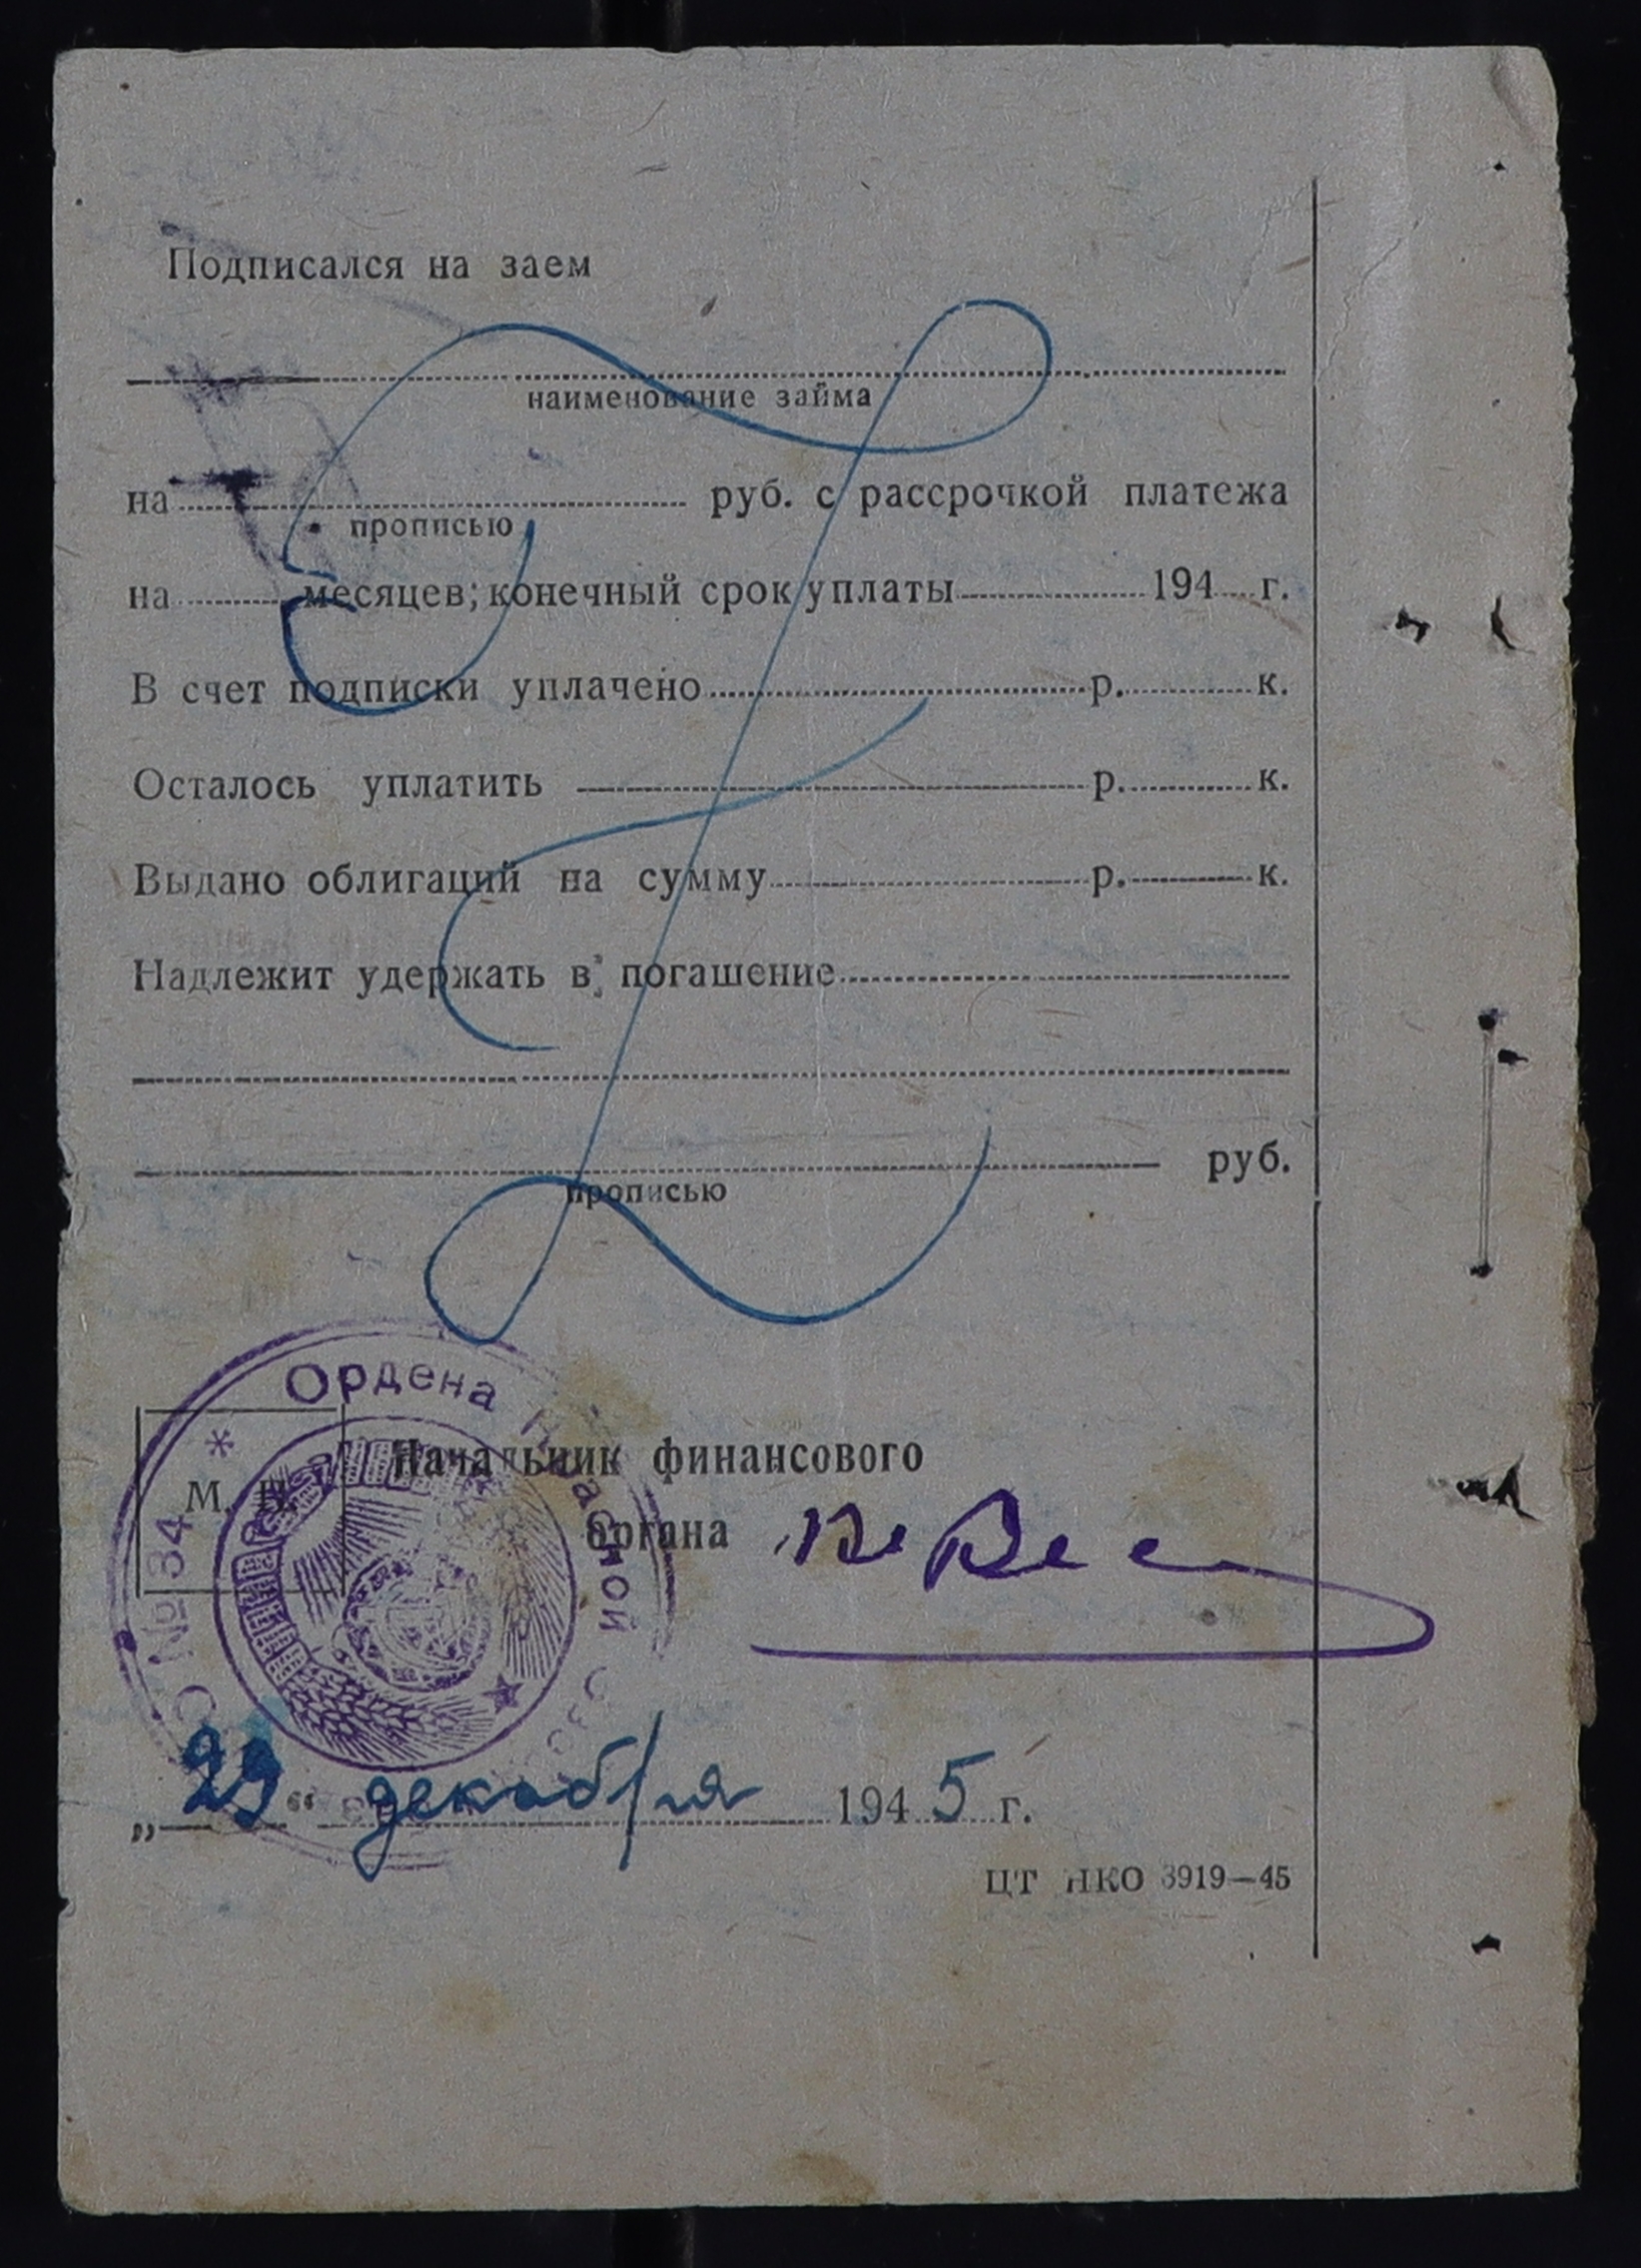 Подписался на заем
наименование займа
на руб. с рассрочкой платежа
прописью
на месяцев; конечный срок уплаты 194 г.
В счет подписки уплачено р. к.
Осталось уплатить р. к.
Выдано облигаций на сумму р. к.
Надлежит удержать в погашение
руб.
прописью
Ордена Красной
№ 34
М. П.
Начальник финансового
органа
„29“ декабря 1945 г.
ЦТ НКО 3919—45